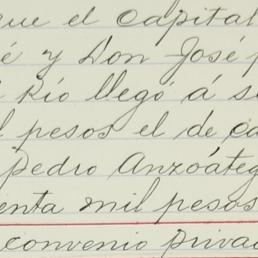 que el capital
é y Don José
Río llegó á s
pesos el de ca
Pedro Anzoáteg
enta mil pesos
convenio priva